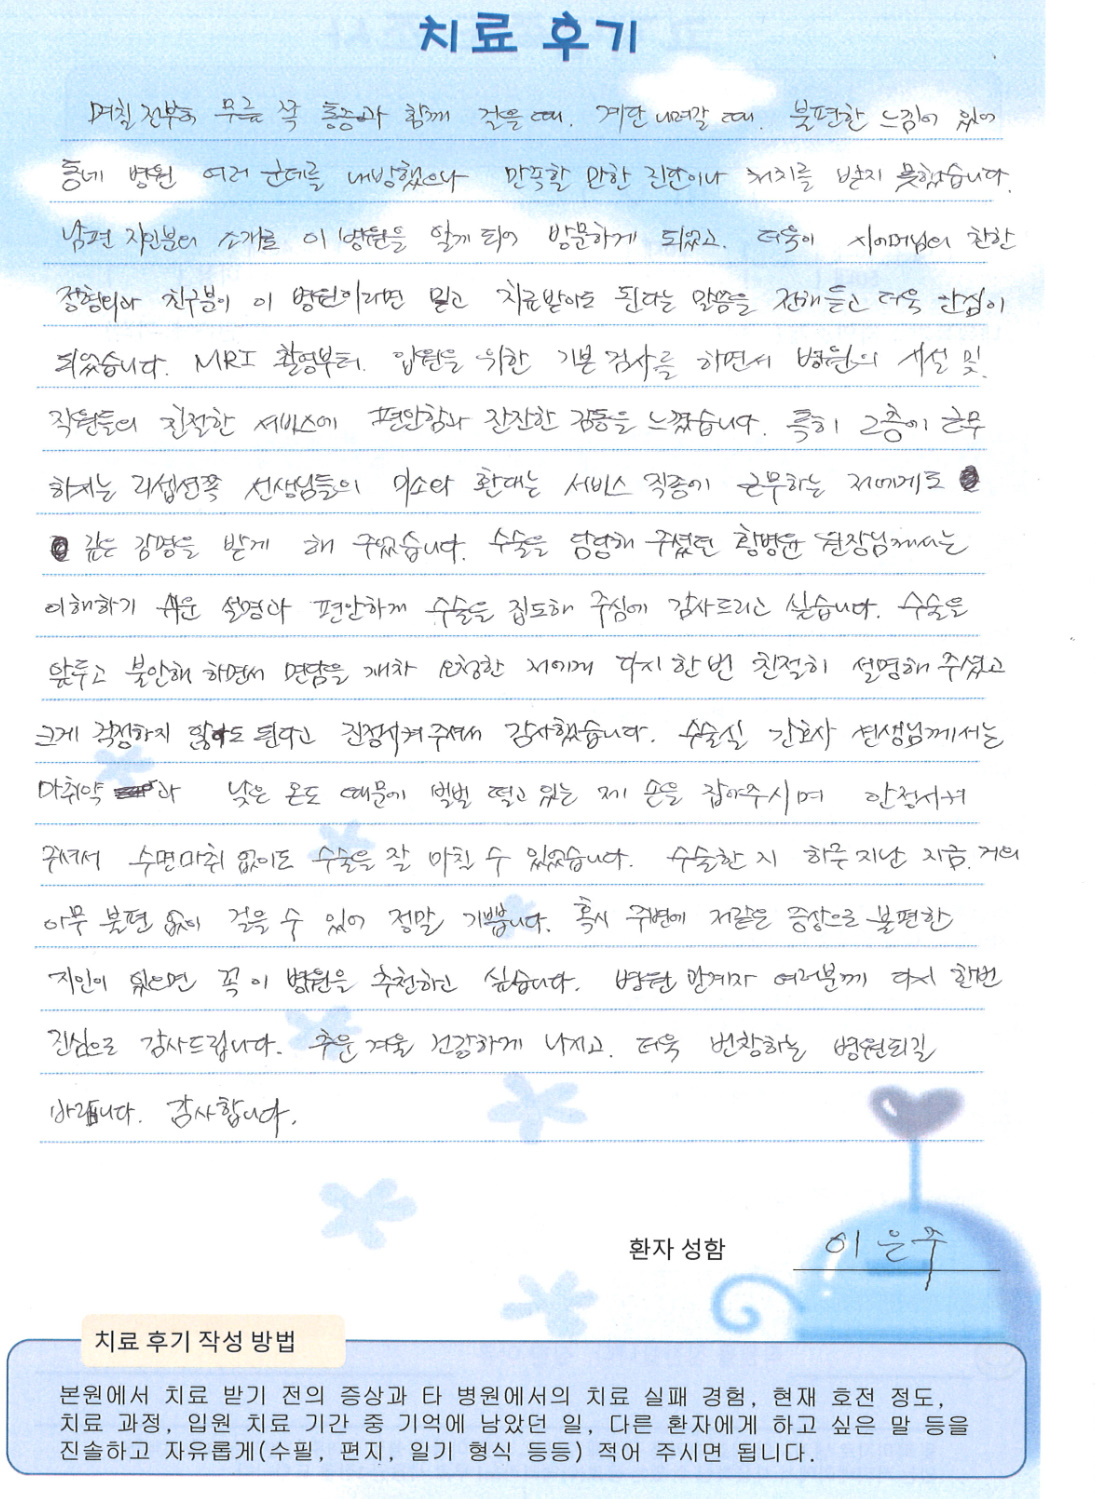 치료 후기
며칠 전부터 무릎 쪽 통증과 함께 걸을 때, 계단 내려갈 때, 불편한 느낌이 있어
동네 병원 여러 군데를 내방했으나 만족할 만한 진단이나 처치를 받지 못했습니다.
남편 지인분의 소개로 이 병원을 알게 되어 방문하게 되었고, 더욱이 시어머님의 친한
정형외과 친구분이 이 병원이라면 믿고 치료받아도 된다는 말씀을 전해듣고 더욱 안심이
되었습니다. MRI 촬영부터, 입원을 위한 기본 검사를 하면서 병원의 시설 및
직원들의 친절한 서비스에 편안함과 잔잔한 감동을 느꼈습니다. 특히 2층에 근무
하시는 리셉션쪽 선생님들의 미소와 환대는 서비스 직종에 근무하는 저에게도
깊은 감명을 받게 해 주었습니다. 수술을 담당해 주셨던 황병윤 원장님께서는
이해하기 쉬운 설명과 편안하게 수술을 집도해 주심에 감사드리고 싶습니다. 수술을
앞두고 불안해 하면서 면담을 재차 요청한 저에게 다시 한 번 친절히 설명해 주셨고
크게 걱정하지 않아도 된다고 진정시켜 주셔서 감사했습니다. 수술실 간호사 선생님께서는
마취약과 낮은 온도 때문에 벌벌 떨고 있는 제 손을 잡아주시며 안정시켜
주셔서 수면마취 없이도 수술을 잘 마칠 수 있었습니다. 수술한 지 하루 지난 지금, 거의
아무 불편 없이 걸을 수 있어 정말 기쁩니다. 혹시 주변에 저같은 증상으로 불편한
지인이 있으면 꼭 이 병원을 추천하고 싶습니다. 병원 관계자 여러분께 다시 한번
진심으로 감사드립니다. 추운 겨울 건강하게 나시고, 더욱 번창하는 병원되길
바랍니다. 감사합니다.
환자 성함 이은주
치료 후기 작성 방법
본원에서 치료 받기 전의 증상과 타 병원에서의 치료 실패 경험, 현재 호전 정도,
치료 과정, 입원 치료 기간 중 기억에 남았던 일, 다른 환자에게 하고 싶은 말 등을
진솔하고 자유롭게(수필, 편지, 일기 형식 등등) 적어 주시면 됩니다.